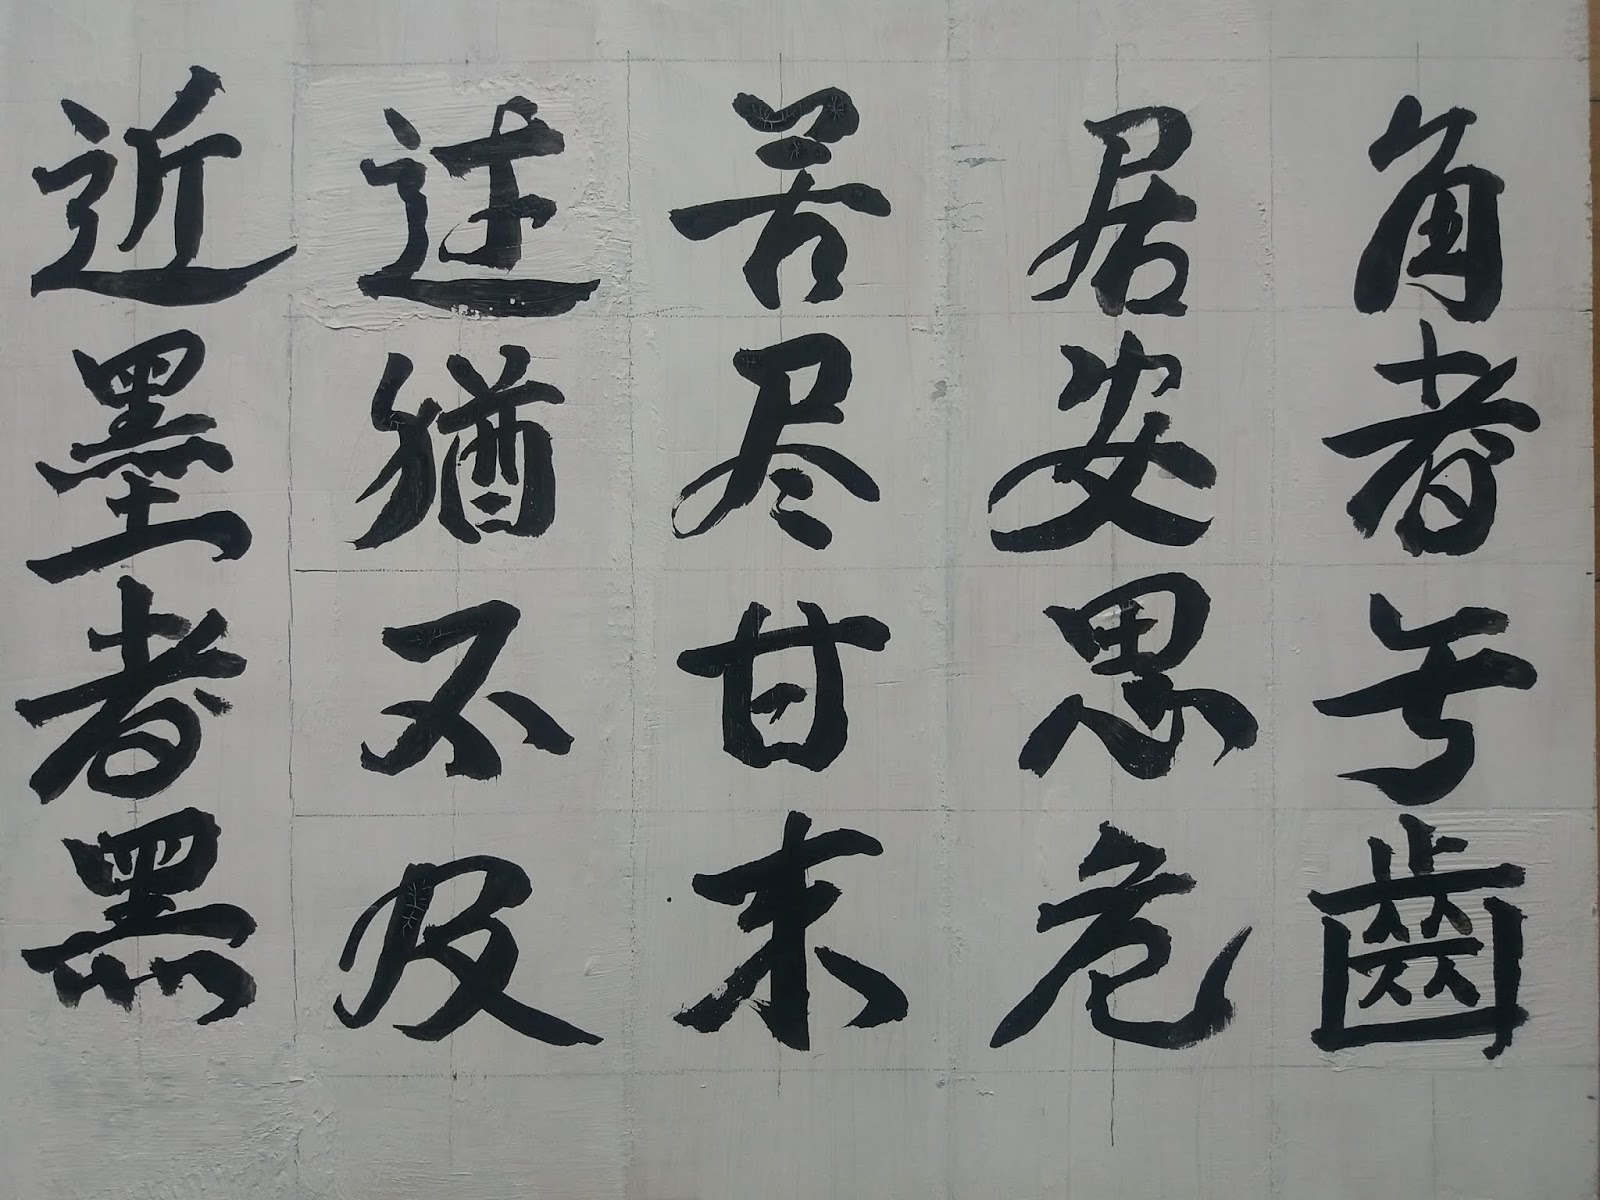 角者無齒
居安思危
苦尽甘来
過猶不及
近墨者黑